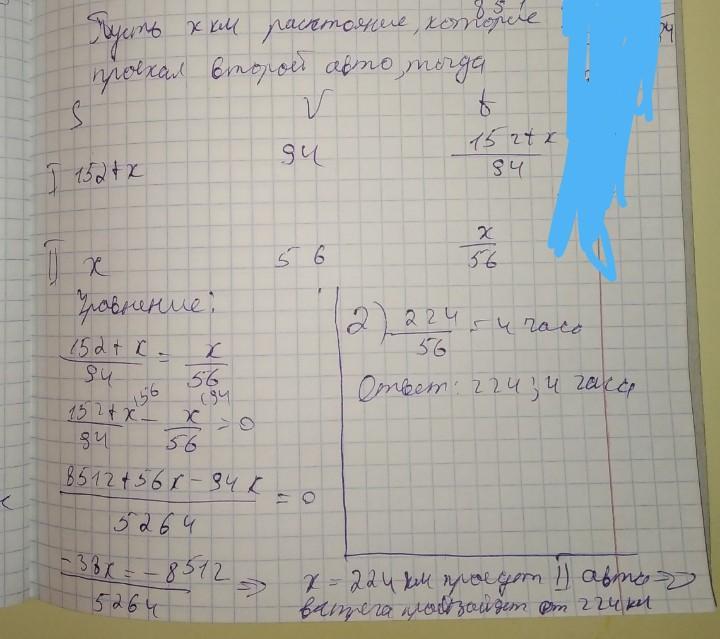 851
Пусть x км расстояние, которое
проехал второй авто, тогда
S V t
I 152+x 94 152+x/94
II x 56 x/56
Уравнение:
152+x/94 = x/56
152+x/94 (56 - x/56 (94 = 0
8512+56x-94x/5264 = 0
-38x = -8512/5264 => x = 224 км проедет II авто =>
встреча произойдет от 224 км
2) 224/56 = 4 часа
Ответ: 224; 4 часа